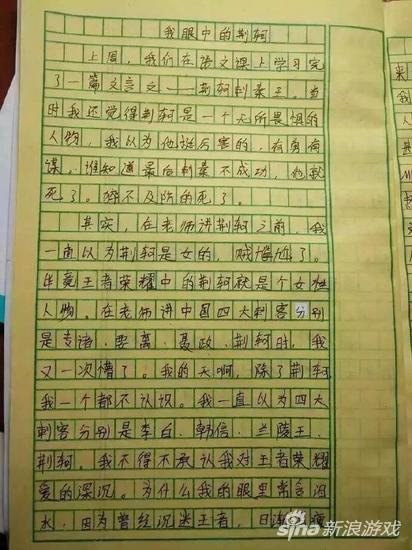 我眼中的荆轲
上周，我们在语文课上学习完
了一篇文言文——荆轲刺秦王。当
时我还觉得荆轲是一个无所畏惧的
人物，我以为他挺厉害的，有勇有
谋。谁知道最后刺秦不成功，他就
死了。猝不及防的死了。
其实，在老师讲荆轲之前，我
一直以为荆轲是女的，贼尴尬了。
毕竟王者荣耀中的荆轲就是个女性
人物。在老师讲中国四大刺客分别
是专诸、要离、聂政、荆轲时，我
又一次懵了。我的天啊，除了荆轲
我一个都不认识。我一直以为四大
刺客分别是李白、韩信、兰陵王、
荆轲。我不得不承认我对王者荣耀
爱的深沉。为什么我的眼里常含泪
水，因为曾经沉迷王者，日渐
sina新浪游戏